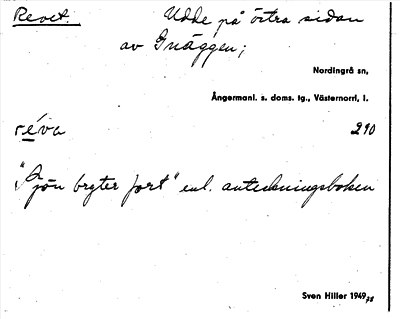 Revet. Udde på östra sidan
av Gnäggen;
Nordingrå sn,
Ångermanl. s. doms. tg., Västernorrl, l.
réva 290
"Sjön bryter fort" enl. anteckningsboken
Sven Hiller 1949